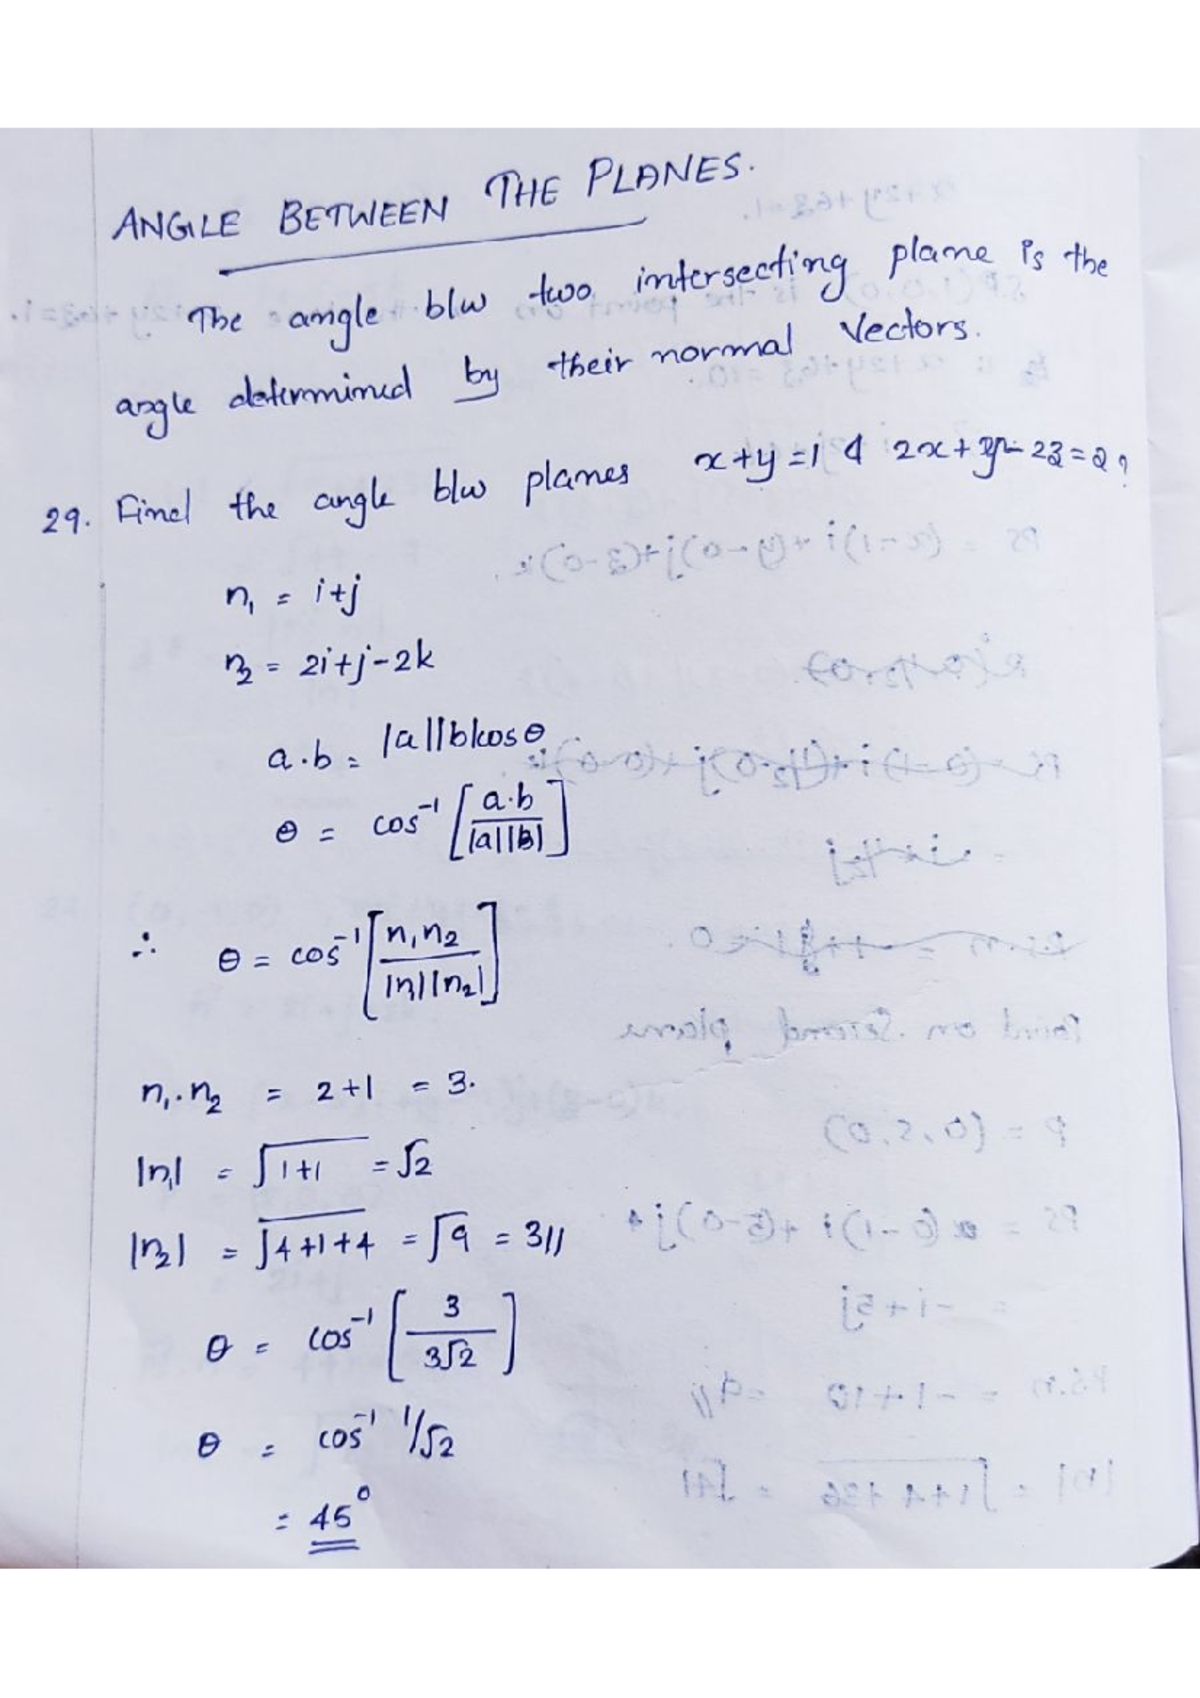 ANGLE BETWEEN THE PLANES.
The angle b/w two intersecting plane is the
angle determined by their normal vectors.
29. Find the angle b/w planes x+y=1 & 2x+y-2z=2?
n₁ = i+j
n₂ = 2i+j-2k
a.b = |a||b|cosθ
θ = cos⁻¹ [a.b / |a||b|]
∴ θ = cos⁻¹ [n₁n₂ / |n₁||n₂|]
n₁.n₂ = 2+1 = 3.
|n₁| = √1+1 = √2
|n₂| = √4+1+4 = √9 = 3//
θ = cos⁻¹ [3 / 3√2]
θ = cos⁻¹ 1/√2
= 45°